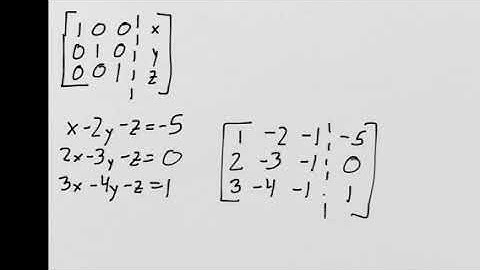 1 0 0 | x
0 1 0 | y
0 0 1 | z
x-2y-z=-5
2x-3y-z=0
3x-4y-z=1
1 -2 -1 | -5
2 -3 -1 | 0
3 -4 -1 | 1